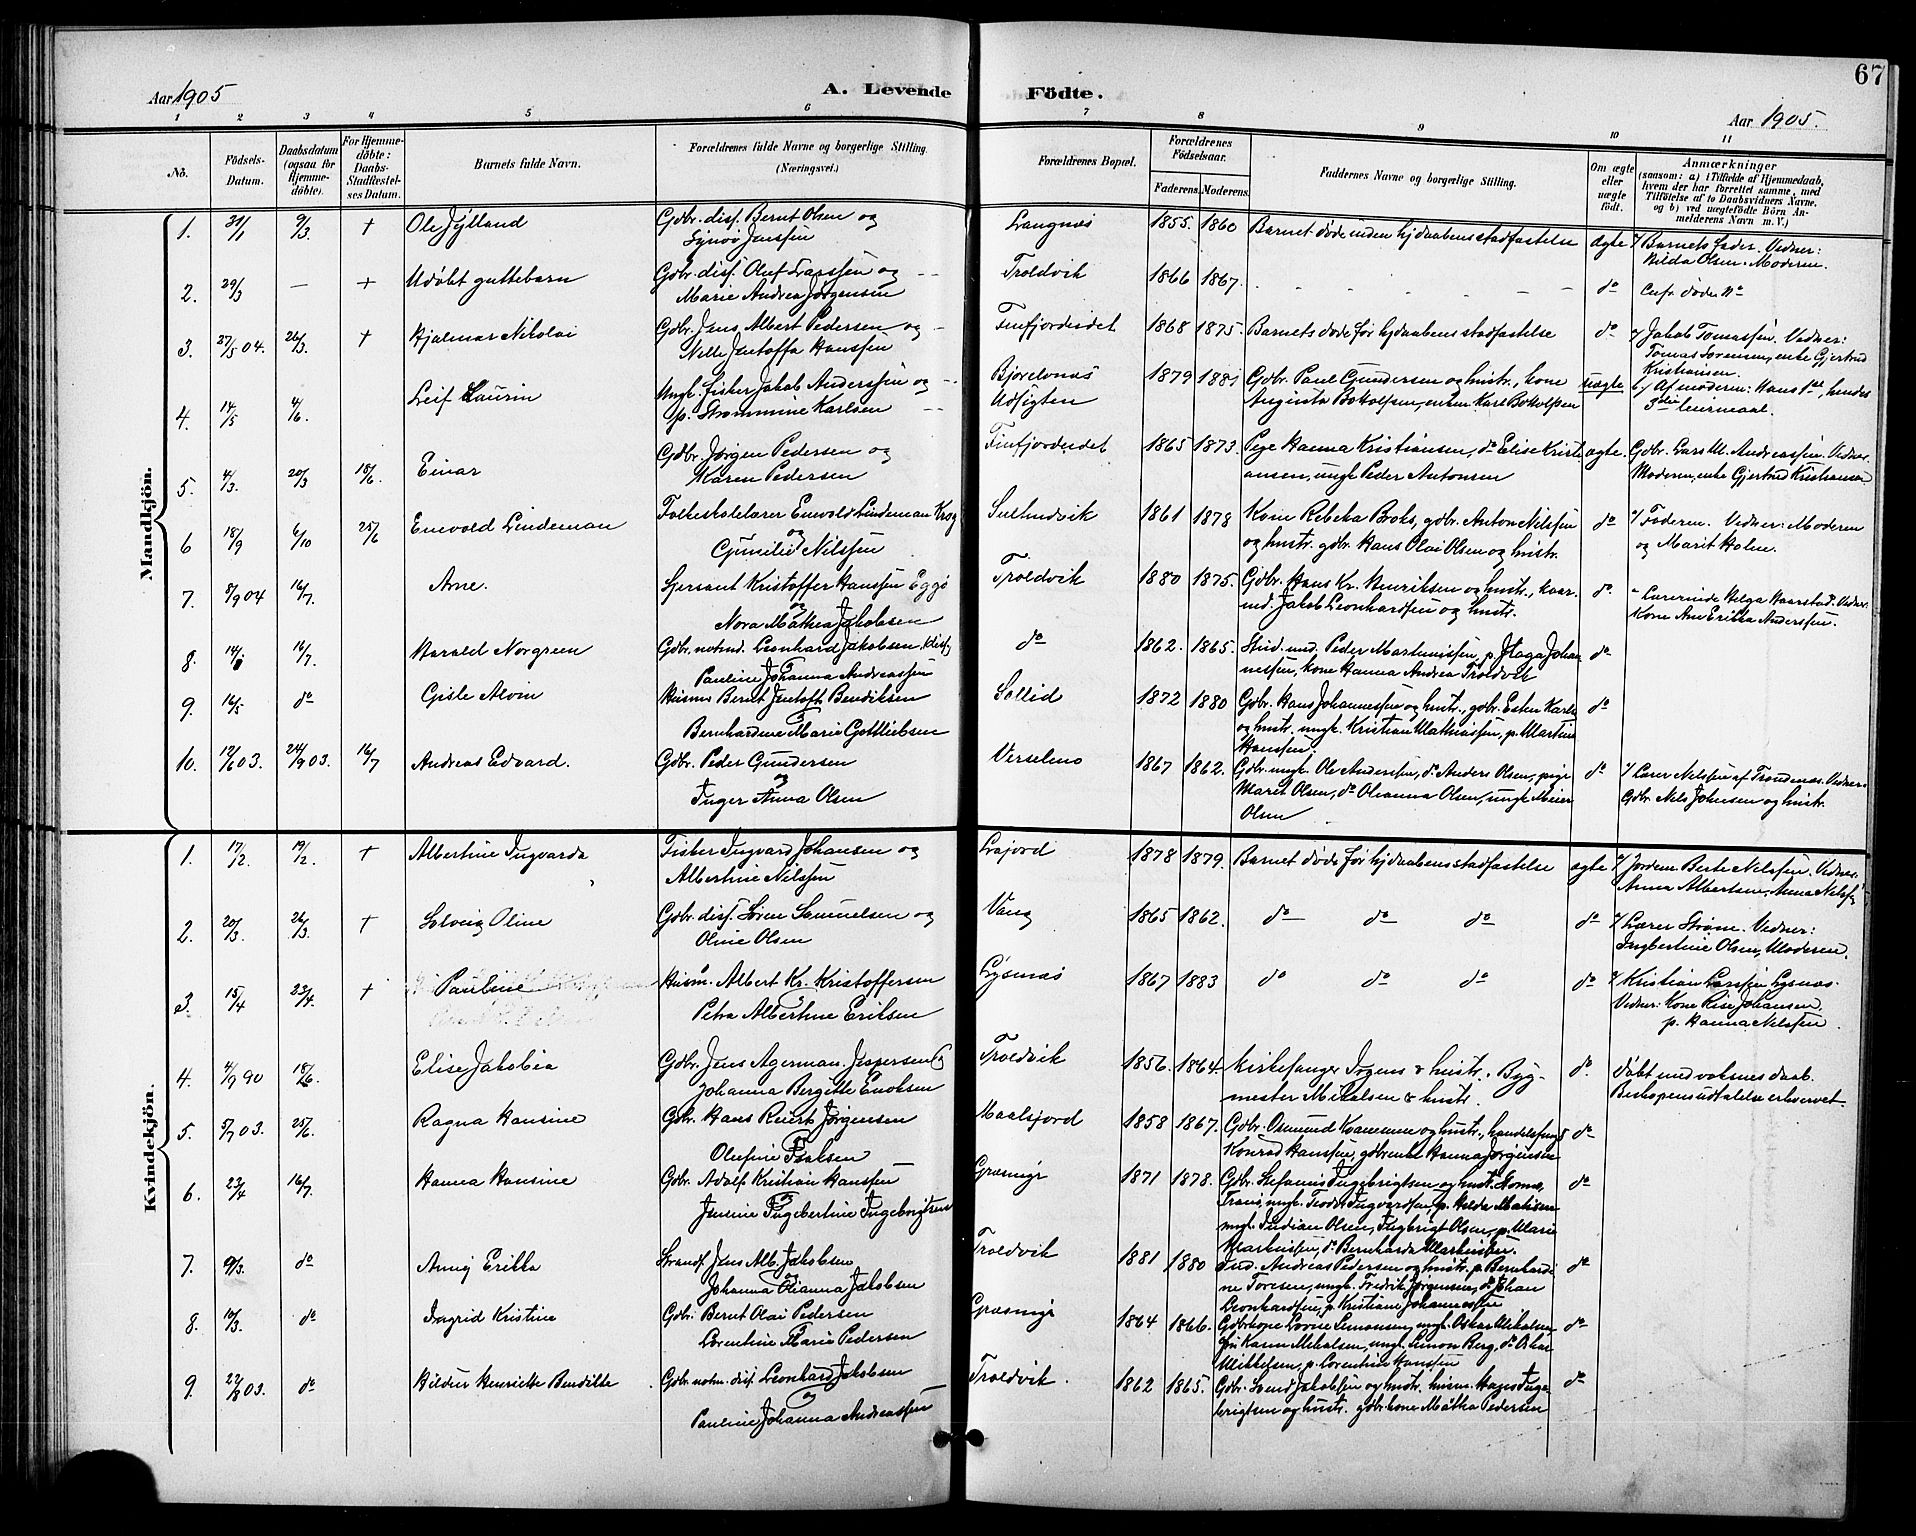 67
Aar 1905
A. Levende
Födte.
Aar 1905.
1 2 3 4 5 6 7 8 9 10 11
No.
Födsels-Datum.
Daabsdatum (ogsaa for Hjemmedöbte).
For Hjemmedöbte: Daabs-Stadfæstelses Datum.
Barnets fulde Navn.
Forældrenes fulde Navne og borgerlige Stilling. (Næringsvei.)
Forældrenes Bopæl.
Forældrenes Födselsaar.
Faderens. Moderens.
Faddernes Navne og borgerlige Stilling.
Om ægte eller uægte födt.
Anmærkninger (saasom: a) i Tilfælde af Hjemmedaab, hvem der har forrettet samme, med Tilföielse af to Daabsvidners Navne, og b) ved uægtefödte Börn Anmelderens Navn m. V.)
Mandkjön.
1. 31/1 9/3 + Ole Jylland Gdbr. disp. Bernt Olsen og Langnæs 1855. 1860 Barnet døde inden hjdaabens stadfæstelse ægte Barnets fader. Vidner:
Synøv Jenssen Hilda Olsen. Moderen.
2. 29/3 — + Udøbt guttebarn Gdbr. diss. Oluf Larssen og Troldvik 1866 1867. do
Marie Andrea Jørgensen
3. 27/5 04. 26/3. + Hjalmar Nikolai Gdbr. Jens Albert Pedersen og Finfjordeidet 1868 1875. Barnets døde før hjdaabens stadfæstelse do Jakob Tomassen. Vidner:
Nille Jentoffa Hanssen Tomas Sørensen, enke Gjertrud Kristiansen
4. 14/5 4/6. Leif Laurin Ungk. fisker Jakob Anderssen og Bjorelvnæs 1879 1881 Gdbr. Paul Gundersen og hustr., kone uægte b/ Af moderen: Hans 1ste, hendes
p. Strømmine Karlsen Udsigten 3die leiermaal.
5. 4/3. 20/3 18/6. Einar Gdbr. Jørgen Pedersen og Finfjordeidet 1865 1873. Pige Hanna Kristiansen, do Elise Kristi- ægte. Gdbr. Lars M. Andreassen. Vidner.
Maren Pedersen ansen, ungk. Peder Antonsen Moderen, enke Gjertrud Kristiansen
6 18/9 6/10 25/6 Enevold Lindeman Folkeskolelærer Enevold Lindeman Krog 1861 1878 Kone Rebeka Broks, gdbr. Anton Nilssen do Faderen. Vidner: Moderen
og Gunilie Nilssen og hustr. gdbr. Hans Olai Olsen og hustr. og Marit Holm.
7. 8/9 04 16/7. Arne. Sersant Kristoffer Hanssen Eggø Troldvik 1880 1875. Gdbr. Hans Kr. Henriksen og hustr., kaar- do Lærerinde Helga Haarstad. Vidner.
og Nora Mathea Jakobsen md. Jakob Leonhardsen og hustr. Kone Ane Erikka Anderssen.
8. 16/7. Harald Norgreen Gdbr. Leonhard Jakobsen do 1862. 1865. do
Pauline Johanna Andreassen kone Hanna Andrea Troldvik
9. 16/5 do Gisle Alvin Husm. Bernt Jentoft Bendiksen Sollid 1872 1880 Gdbr. Hans Johannessen og hustr., gdbr. Esten Karls do
Bernhardine Marie Gottliebsen og hustr. ungk. Kristian Mathiassen, p. Martine Hanssen.
10. 12/6 03. 24/9 03. 16/7 Andreas Edvard. Gdbr. Peder Gundersen 1867 1862. Gdbr. ungk. Ole Anderssen, do Anders Olsen, pige do Lærer Nilssen af Trondenæs. Vidner:
og Inger Anna Olsen Maret Olsen, do Oleanna Olsen, ungk. Meier Olsen Gdbr. Nils Johnsen og hustr.
Kvindekjön.
1. 17/2. 19/2. + Albertine Ingvarda Fisker Ingvard Johansen og 1878 1879. Barnet døde før hjdaabens stadfæstelse ægte Jordem. Berte Nilssen. Vidner:
Albertine Nilssen Anna Albertsen, Anna Nilssen
2. 20/3. 26/3. + Solveig Oline Gdbr. diss. Søren Samuelsen og Vang 1865 1862. do do do do Lærer Strøm. Vidner:
Oline Olsen Ingbertine Olsen, Moderen.
3. 15/4 23/4. + Pauline Husm. Albert Kr. Kristoffersen Lysnæs 1867 1883 do do do do Kristian Larssen Lysnæs.
Petra Albertine Eriksen Vidner: Kone Rise Johansen, p. Hanna Nilssen.
4. 4/9 90 18/6. Elise Jakobia Gdbr. Jens Agerman Jespersen Troldvik 1856. 1864. Kirkesanger Irgens & hustr. Byg- do Døbt med voksnes daab.
Johanna Bergitte Enoksen mester Mikalsen & hustr. Biskopens udtalelse erhvervet.
5. 5/7 03. 25/6. Ragna Hansine Gdbr. Hans Reiert Jørgensen Maalsjord 1858 1867. Gdbr. Osmund Kvamme og hustr., handelsfung. do
Olufine Isaksen Konrad Hanssen, gdbrenke Hanna Jørgensen
6. 23/4 16/7. Hanna Hansine Gdbr. Adolf Kristian Hanssen Græsmyr 1871 1878. Gdbr. Stefanus Ingebrigtsen og hustr. do
Jensine Ingebertine Ingebrigtsen ungk. Teodor Ingvardsen, p. Hilda Mathisen
ungk. Indian Olsen, Ingbrigt Olsen, p. Marie
Markussen, do Bernharda Markussen.
7. 9/3. do Anny Erikka Strands. Jens Alb. Jakobsen Troldvik 1881 1880 Ind. Andreas Pedersen og hustr. p. Bernhardi- do
Johanna Oleanna Jakobsen ne Toresen, ungk. Fredrik Jørgensen, do Johan
Leonhardsen, p. Kristiane Johannessen
8. 10/3. do Ingrid Kristine Gdbr. Bernt Olai Pedersen Græsmyr 1864 1866. Gdbrkone Lovise Simonsen, ungk. Oskar Mikalsen, do
Lorentine Marie Pedersen frk Karen Mikalsen, ungk. Simon Berg, do Oskar
Mikkelsen, p. Lorentine Hanssen
9. do Hildur Henriette Bendikte Gdbr. Leonhard Jakobsen Troldvik. 1862 1865. Gdbr. Svend Jakobsen og hustr. husm. Hans Inge- do
Pauline Johanna Andreassen brigtsen og hustr. gdbr. kone Mátka Pedersen